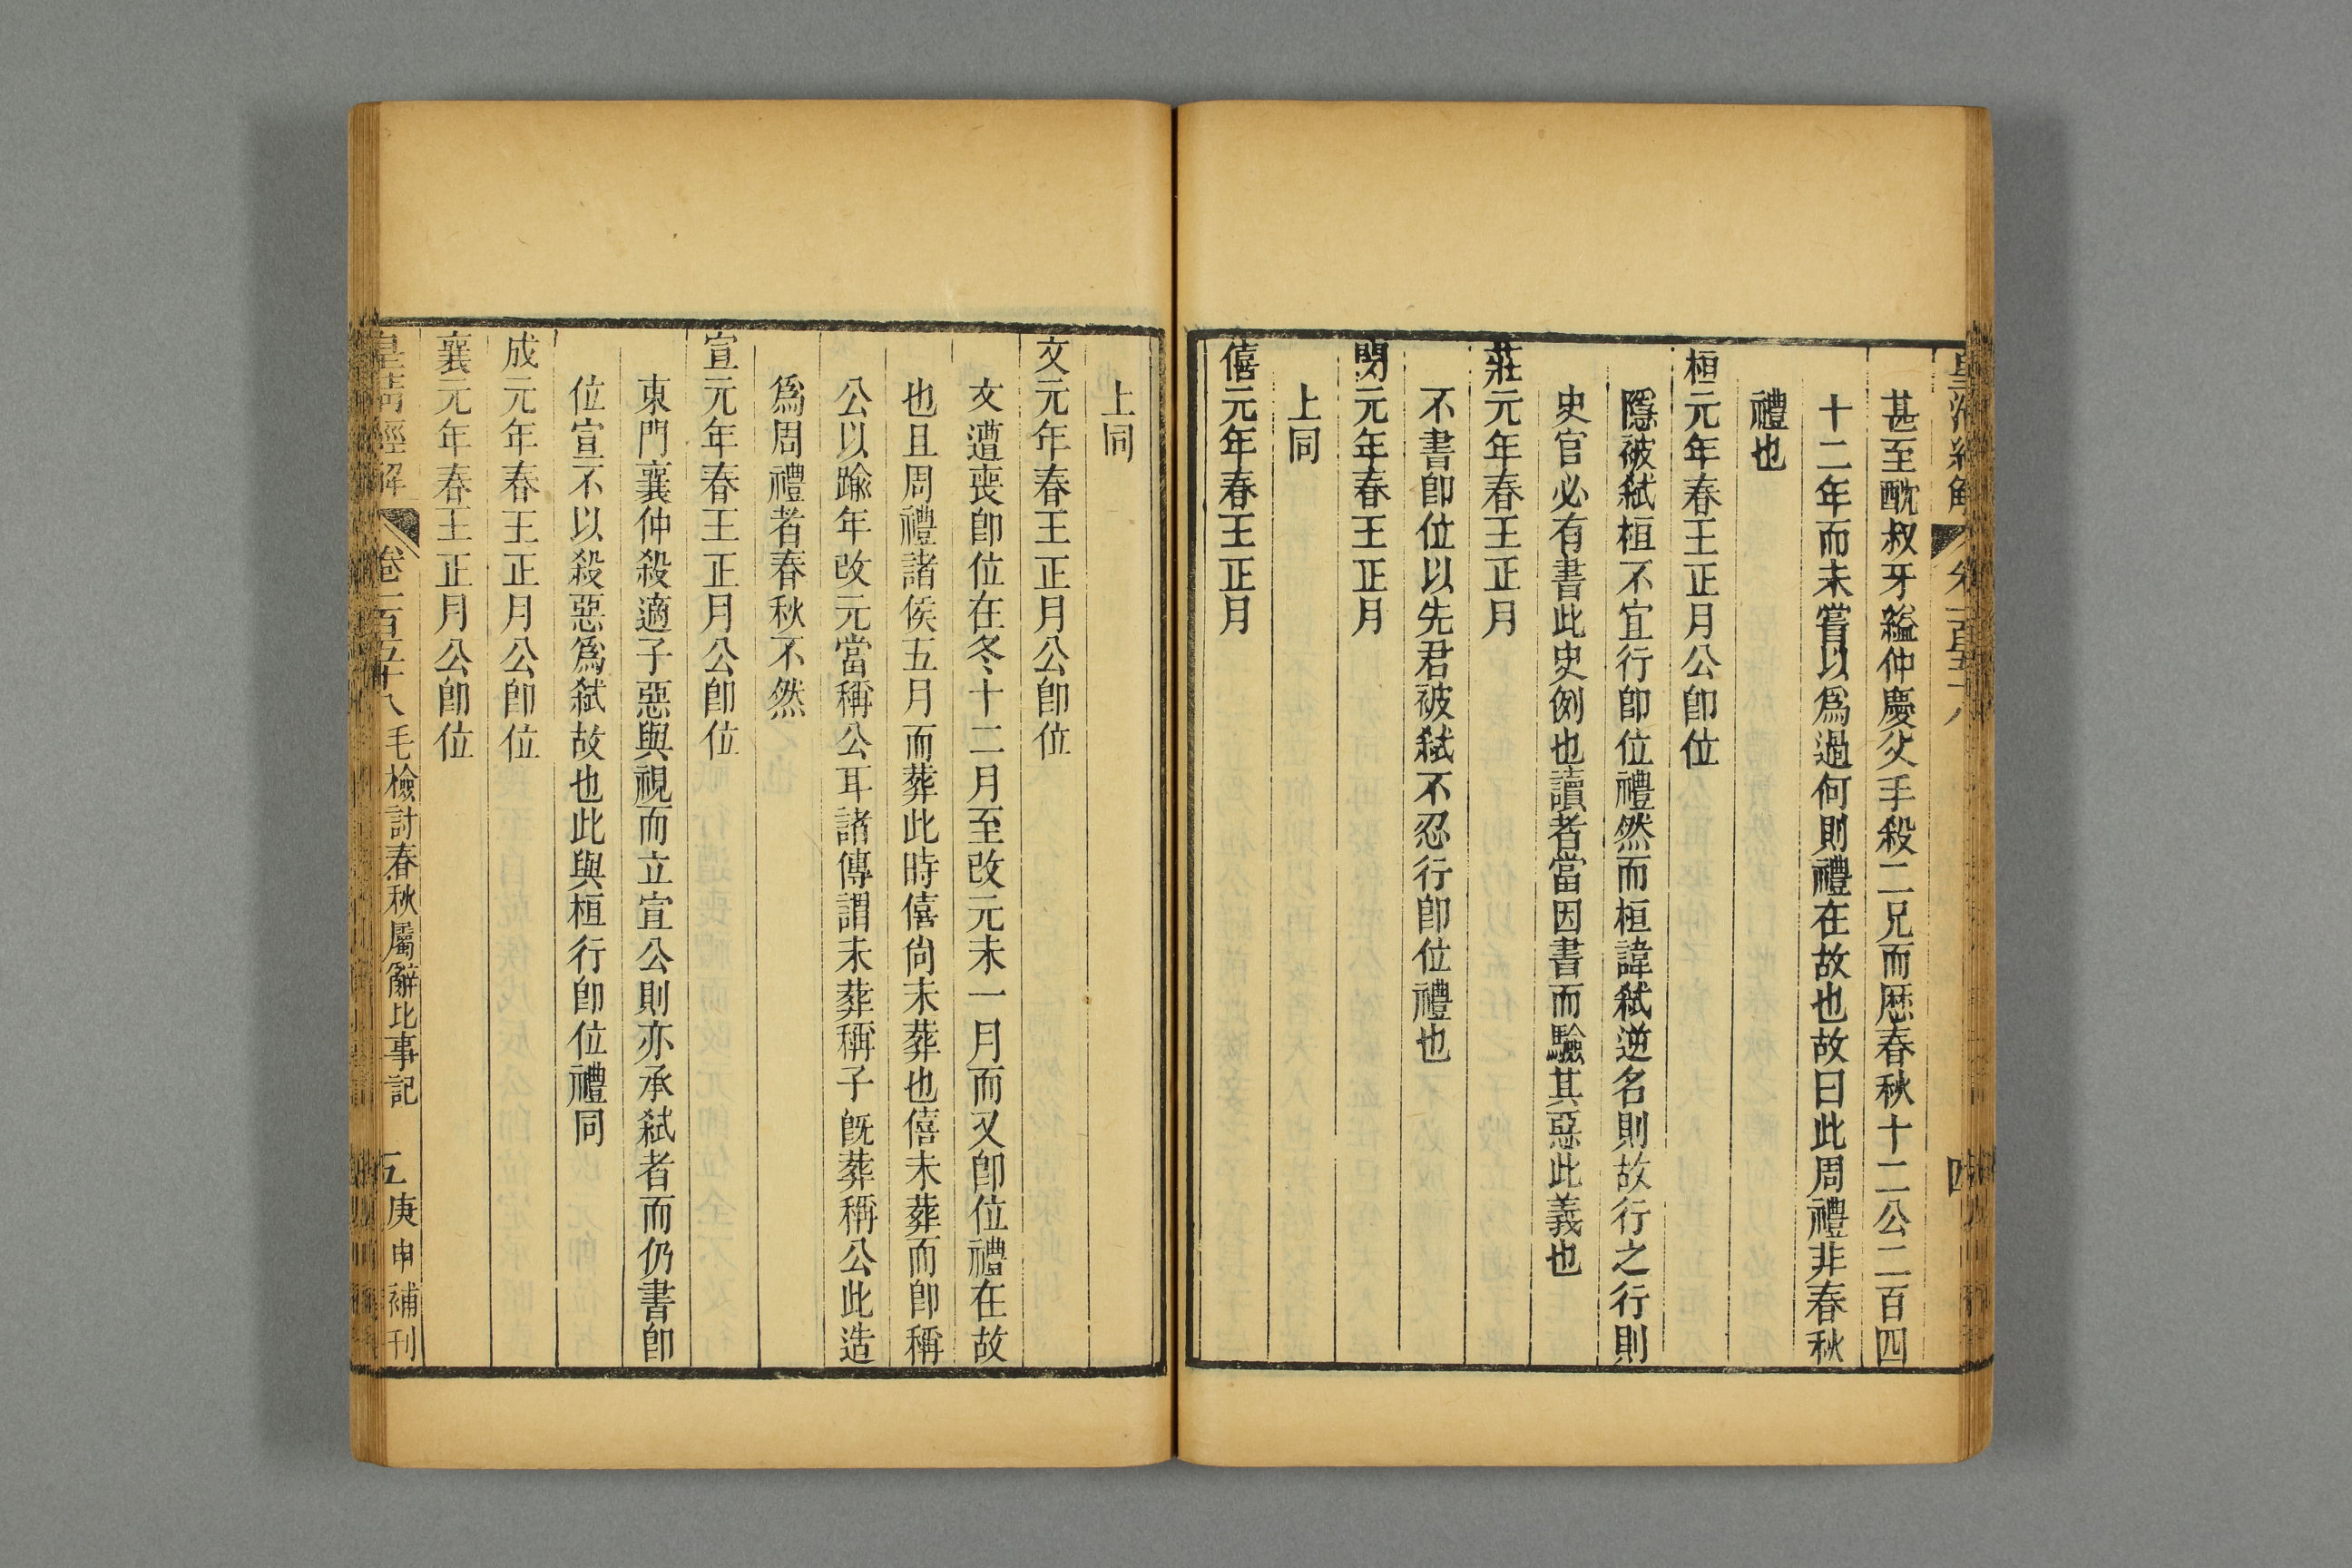 皇清經解 卷一百五十八 四
甚至酖叔牙縊仲慶父手殺二兄而歷春秋十二公二百四
十二年而未嘗以爲過何則禮在故也故曰此周禮非春秋
禮也
桓元年春王正月公卽位
隱被弒桓不宜行卽位禮然而桓諱弒逆名則故行之行則
史官必有書此史例也讀者當因書而驗其惡此義也
莊元年春王正月
不書卽位以先君被弒不忍行卽位禮也
閔元年春王正月
上同
僖元年春王正月
上同
文元年春王正月公卽位
文遭喪卽位在冬十二月至改元未一月而又卽位禮在故
也且周禮諸侯五月而葬此時僖尙未葬也僖未葬而卽稱
公以踰年改元當稱公耳諸傳謂未葬稱子旣葬稱公此造
爲周禮者春秋不然
宣元年春王正月公卽位
東門襄仲殺適子惡與視而立宣公則亦承弒者而仍書卽
位宣不以殺惡爲弒故也此與桓行卽位禮同
成元年春王正月公卽位
襄元年春王正月公卽位
皇清經解 卷一百五十八 毛檢討春秋屬辭比事記 五 庚申補刊